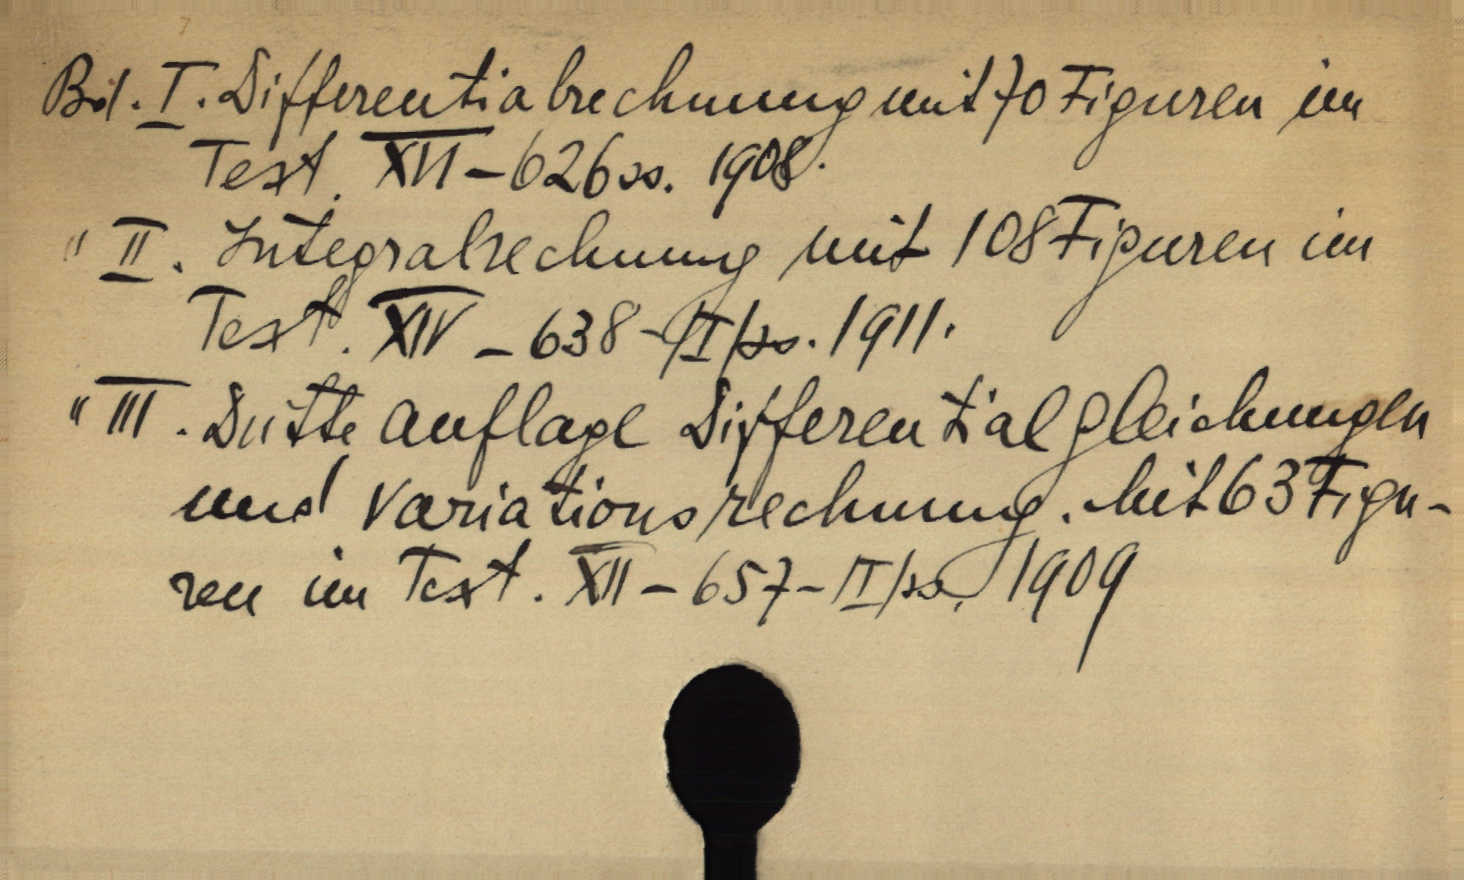 Bd. I. Differentialrechnung mit 70 Figuren im
Text. XVI-626 ss. 1908.
" II. Integralrechnung mit 108 Figuren im
Text. XIV-638-/I/ss. 1911.
" III. Dritte Auflage Differentialgleichungen
und Variationsrechnung. Mit 63 Figu-
ren im Text. XII-657-/I/ss. 1909